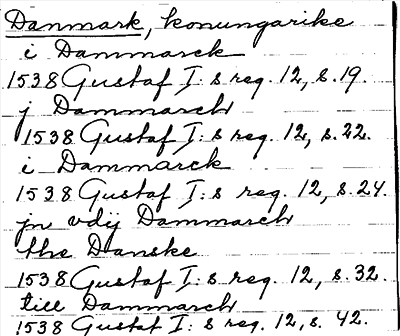 Danmark, konungarike
i Dammarck
1538 Gustaf I:s reg. 12, s. 19.
j Dammarch
1538 Gustaf I:s reg. 12, s. 22.
i Dammarck
1538 Gustaf I:s reg. 12, s. 24.
jn vdij Dammarch
the Danske
1538 Gustaf I:s reg. 12, s. 32.
till Dammarch
1538 Gustaf I:s reg. 12, s. 42.